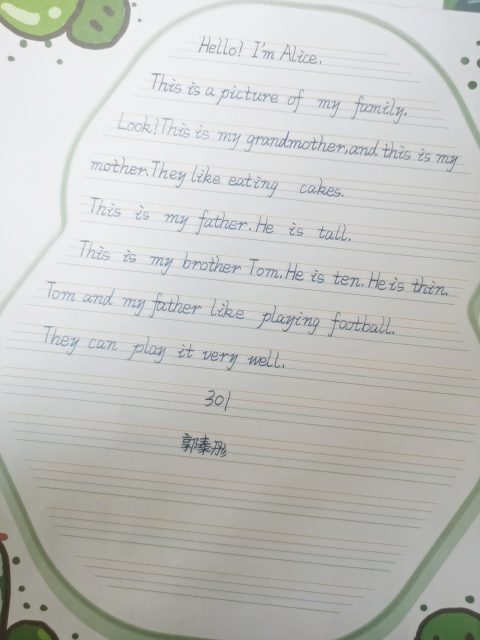 Hello! I'm Alice.
This is a picture of my family.
Look! This is my grandmother, and this is my
mother. They like eating cakes.
This is my father. He is tall.
This is my brother Tom. He is ten. He is thin.
Tom and my father like playing football.
They can play it very well.
301
郭泰彤